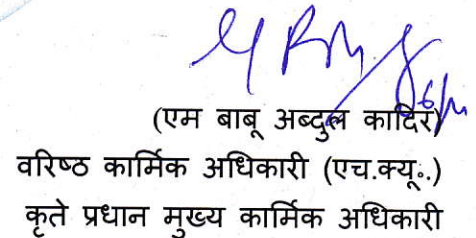 (एम बाबू अब्दुल कादिर)
वरिष्ठ कार्मिक अधिकारी (एच.क्यू..)
कृते प्रधान मुख्य कार्मिक अधिकारी